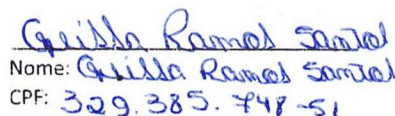 Geissa Ramos Santos
Nome: Geissa Ramos Santos
CPF: 329.385.748-51